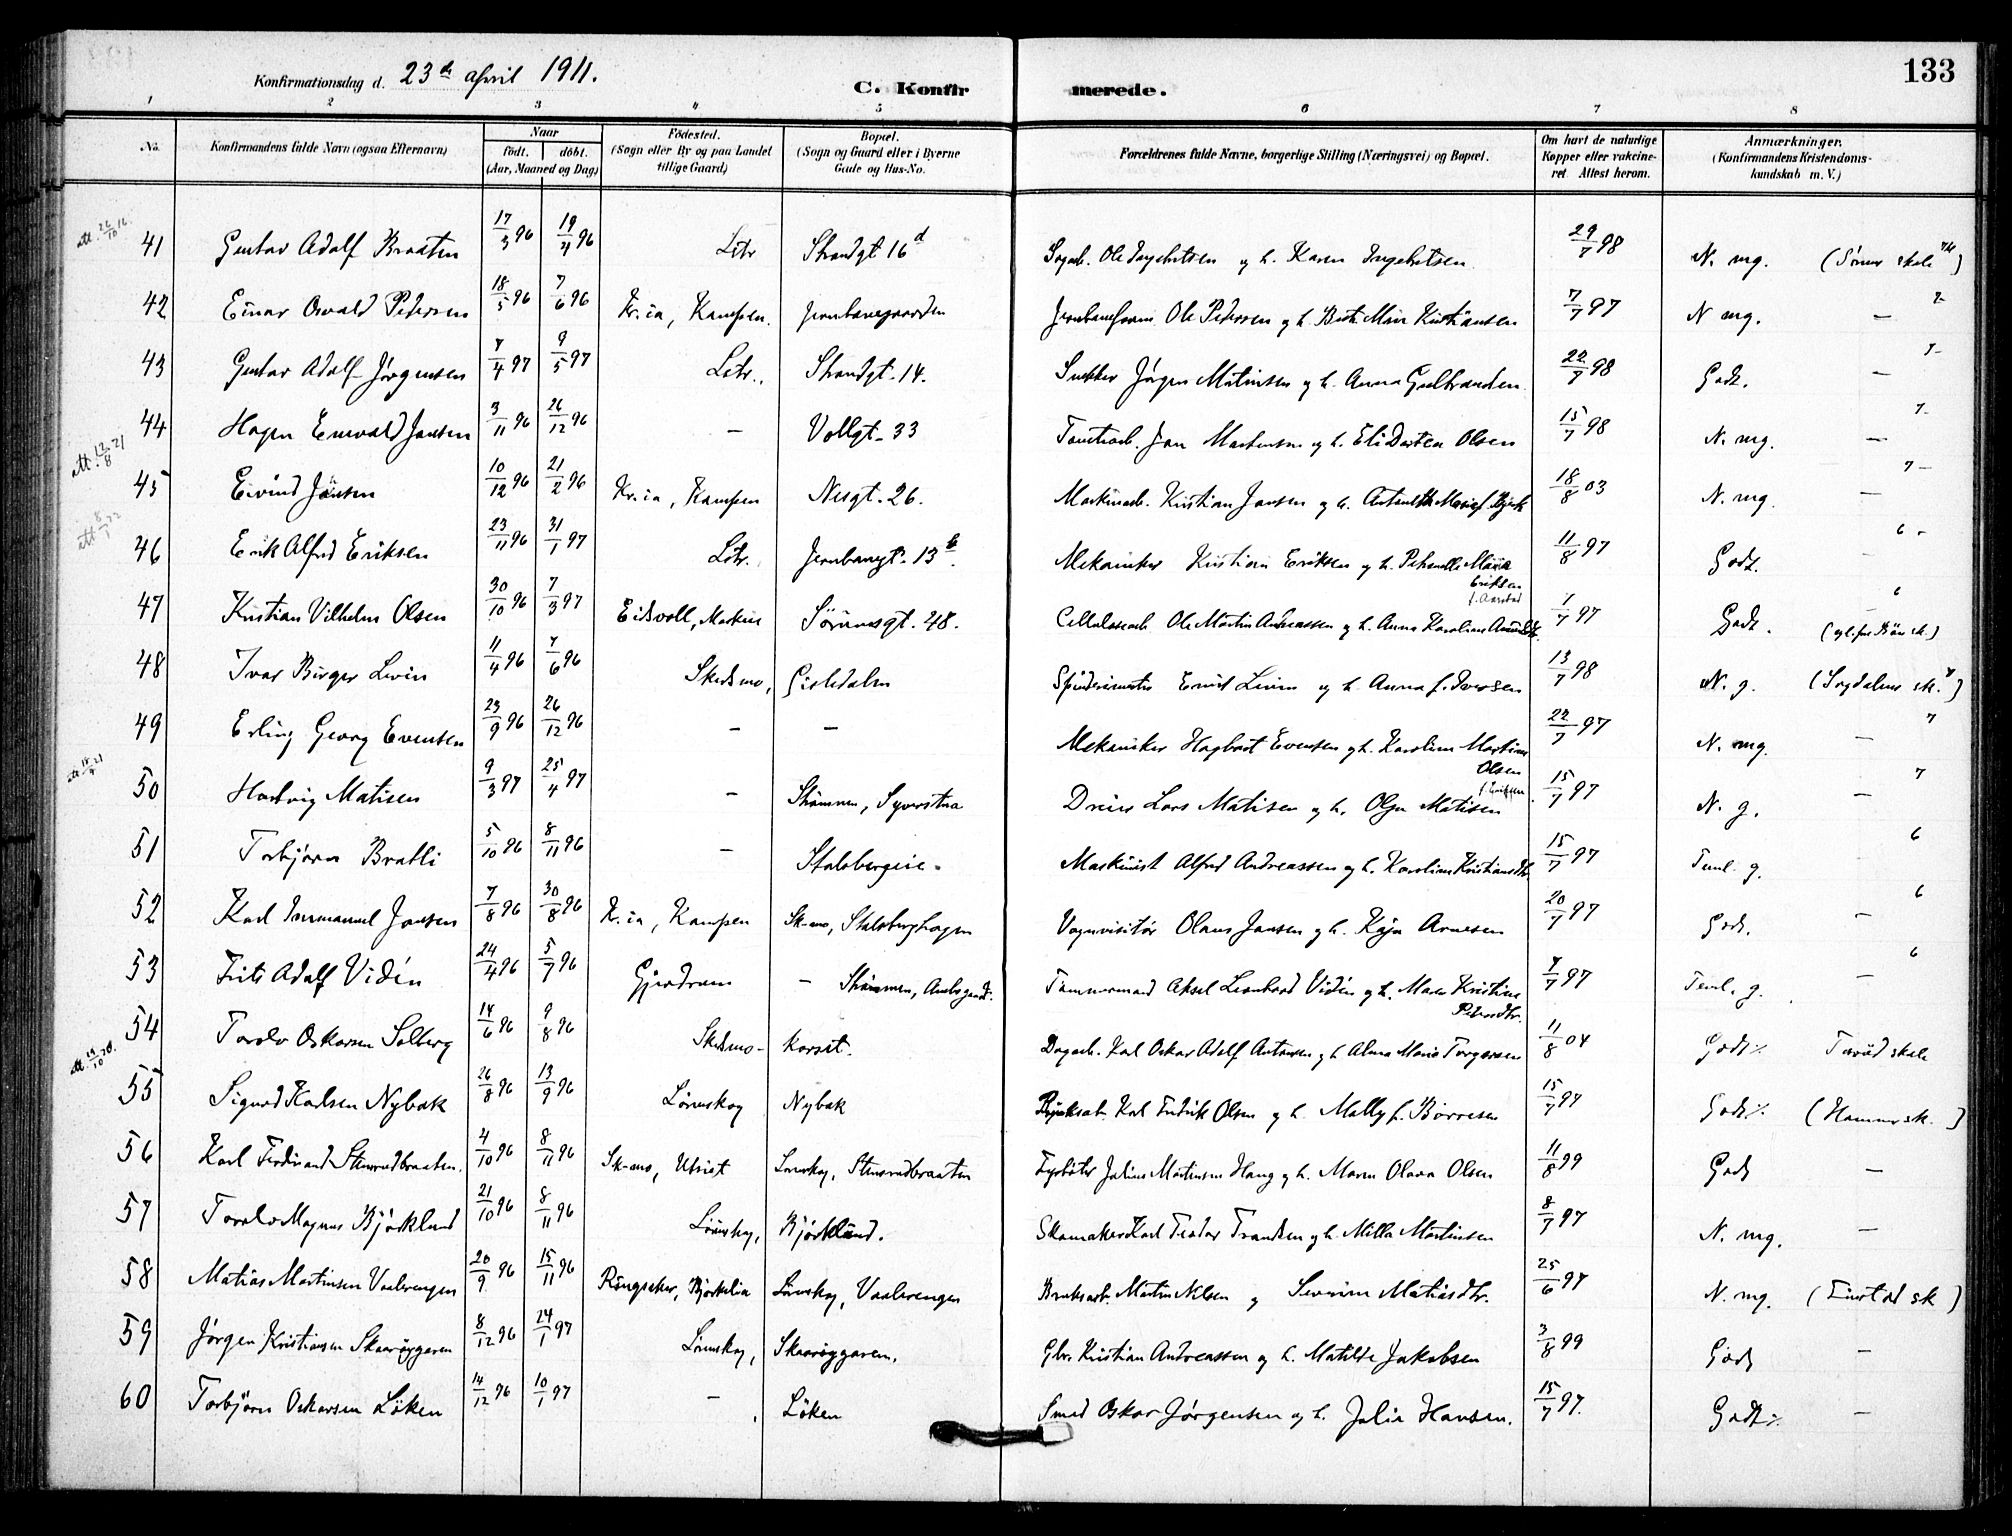 133
Konfirmationsdag d. 23de april 1911.
C. Konfir merede.
1 2 3 " 5 6 7 8
No. Konfirmandens fulde Navn (ogsaa Efternavn) Naar født. døbt. (Aar, Maaned og Dag) Födested. (Sogn eller By og paa Landet tillige Gaard) Bopæl. (Sogn og Gaard eller i Byerne Gade og Hus-No. Forældrenes fulde Navne, borgerlige Stilling (Næringsvei) og Bopæl. Om havt de naturlige Kopper eller vakcineret. Attest herom. Anmærkninger. (Konfirmandens Kristendomskundskab m. V.)
att. 26/10 16.
41 Gustav Adolf Braaten 17/3 96 19/4 96 Lstr Strandgt 16 d Ole Ingebritsen og h. Karen Ingebritsen 29/7 98 N. mg.
42 Einar Osvald Pedersen 18/5 96 7/6 96 Kr.ia, Kampen. Jernbanegaarden Ole Pedersen og h. 7/7 97 N mg. —
43 Gustav Adolf Jørgensen 7/4 97 9/5 97 Lstr. Strandgt. 14. Snekker Jørgen Martinsen og h. Anna Gulbrandsen 22/7 98 Godt. —
44 Hagen Enevald Jansen 3/11 96 26/12 96 — Vollgt. 33 Jan Martinsen og h. Eli Dortea Olsen 15/7 98 N. mg. —
att. 12/8 21
45 Eivind Jansen 10/12 96 21/2 96 Kr.ia, Kampen Nesgt. 26. Maskinarb. Kristian Jansen og h. 18/8 03 N. mg. —
46 Erik Alfred Eriksen 23/11 96 31/1 97 Lstr. Jernbanegt. 13 b. Mekaniker Kristian Eriksen og h. Pernille Marie Eriksen f. Aarstad 11/8 97 Godt. 6
47 Kristian Vilhelm Olsen 30/10 96 7/3 97 Eidsvoll, Sørumsgt. 48. Cellulosearb. Ole Martin Andreassen og h. Anna Karoline 1/7 97 Godt.
48 Ivar Birger Levin 11/4 96 7/6 96 Skedsmo, Gisledalen Levin og h. Anna f. Iversen 13/7 98 N. g. (Sogdalens sk.)
49 Erling Georg Evensen 23/9 96 26/12 96 — — Mekaniker Hagbart Evensen og h. Karoline Martine Olsen 22/7 97 N. mg. — 7
50 Hartvig Matisen 9/3 97 25/4 97 — Strømmen, Syverstua Dreier Lars Matisen og h. Olga Matisen f. Eriksen. 15/7 97 N. g. — 7
51 Torbjørn Bratli 5/10 96 8/11 96 — Stalsbergeie. Maskinist Alfred Andreassen og h. Karoline Kristiansdtr. 15/7 97 Teml. g. 6
52 Karl Immanuel Jansen 7/8 96 30/8 96 K.ia, Kampen Sk-mo, Stalsberghagen Vognvisitør Olaus Jansen og h. Kaja Arnesen 20/7 97 Godt. — 6
53 Frits Adolf Vidén 24/4 96 5/7 96 Gjerdrum — Strømmen, Tømmermand Aksel Leonhard Vidén og h. Maren Kristine Pedersdtr. 7/7 97 Teml. g. — 6
54 Torolv Oskarsen Solberg 14/6 96 9/8 96 Skedsmo- korset. Dagarb. Karl Oskar Adolf Antonsen og h. Alma Marie Torgersen 11/8 04 Godt skole
55 Sigurd Karlsen Nybak 26/8 96 13/9 96 Lørenskog Nybak Karl Fredrik Olsen og h. Mally f. Børresen 15/7 97 Godt (Hammer sk.)
56 Karl Ferdinand Stensrudbraaten. 4/10 96 8/11 96 Sk-mo, Utrist Lørenskog, Stensrudbraaten Fyrbøter Julius Martinsen Haug og h. Maren Olava Olsen 11/8 99 Godt —
57 Torolv Magnus Bjørklund 21/10 96 8/11 96 Lørenskog, Bjørklund. Skomaker Karl Teodor Frandsen og h. Milla Martinsen 8/7 97 N. mg. —
58 Matias Martinsen Vaalerengen 20/9 96 15/11 96 Ringsaker, Bjørkelia Lørenskog, Vaalerengen Bruksarb. Martin Nilsen og Severine Matiasdtr. 25/6 97 N. mg. (Finstad sk)
59 Jørgen Kristiansen Skaarøyggaren 8/12 96 24/1 97 Lørenskog, Skaarøyggaren. Gbr. Kristian Andreassen og h. Matilde Jakobsen 3/8 99 Godt —
60 Torbjørn Oskarsen Løken 14/12 96 10/1 97 — Løken Smed Oskar Jørgensen og h. Julie Hansen. 15/7 97. Godt —